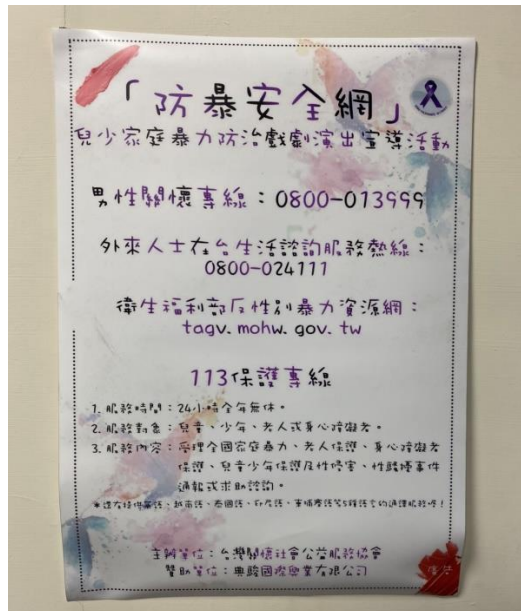 「防暴安全網」
兒少家庭暴力防治戲劇演出宣導活動
男性關懷專線：0800-013999
外來人士在台生活諮詢服務熱線：
0800-024111
衛生福利部反性別暴力資源網：
tagv.mohw.gov.tw
113保護專線
1. 服務時間：24小時全年無休。
2. 服務對象：兒童、少年、老人或身心障礙者
3. 服務內容：受理全國家庭暴力、老人保護、身心障礙者
保護、兒童少年保護及性侵害、性騷擾事件
通報或求助諮詢。
*還有提供英語、越南語、泰國語、印尼語、柬埔寨語等5種語言的通譯服務唷！
主辦單位：台灣關懷社會公益服務協會
贊助單位：典駿國際興業有限公司